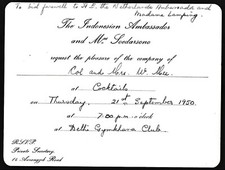 To bid farewell to H.E. the Netherlands Ambassador and
Madame Lamping.
The Indonesian Ambassador
and Mme Soedarsono
request the pleasure of the company of
Col and Mrs. W.
at Cocktails
on Thursday, 21st September 1950.
at 7.00 p.m. o'clock
at Delhi Gymkhana Club.
R.S.V.P.
Private Secretary,
Road